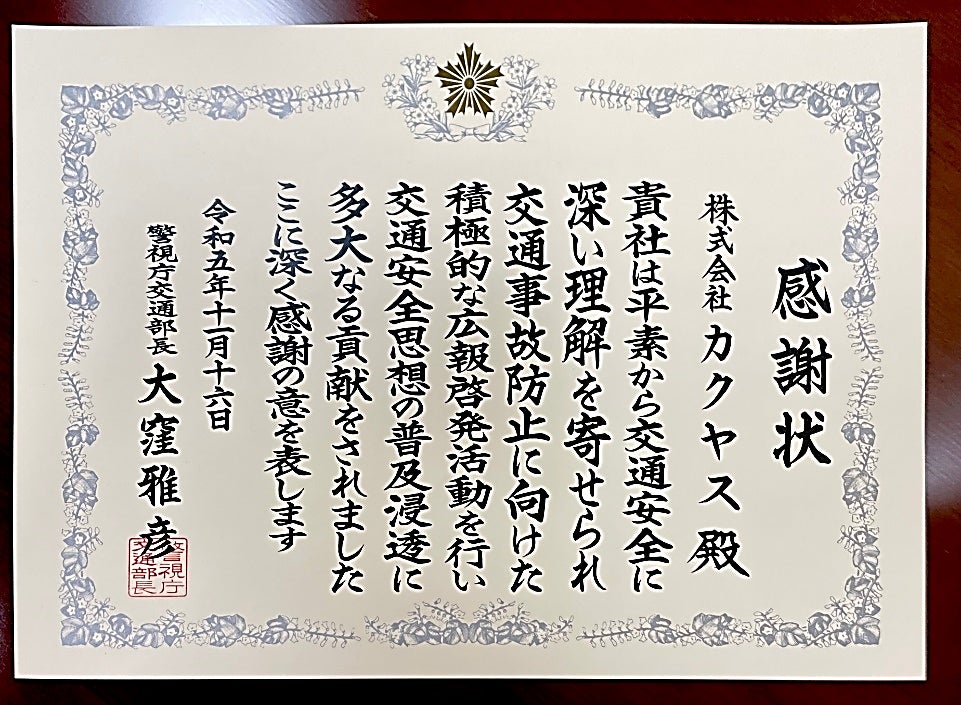 感謝状
株式会社カクヤス殿
貴社は平素から交通安全に
深い理解を寄せられ
交通事故防止に向けた
積極的な広報啓発活動を行い
交通安全思想の普及浸透に
多大なる貢献をされました
ここに深く感謝の意を表します
令和五年十一月十六日
警視庁交通部長 大窪雅彦
警視庁
交通部長